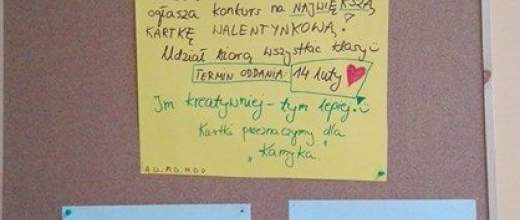 ogłasza konkurs na NAJWIĘKSZĄ
KARTKĘ WALENTYNKOWĄ.
Udział biorą wszystkie klasy
TERMIN ODDANIA: 14 luty
Im kreatywniej - tym lepiej!
Kartki przeznaczymy dla
"Kamyka"